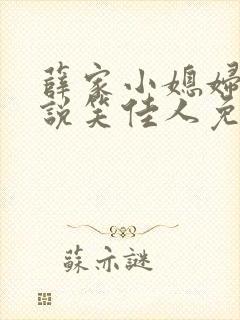 薛家小媳婦
説笑佳人免
蘇亦謎